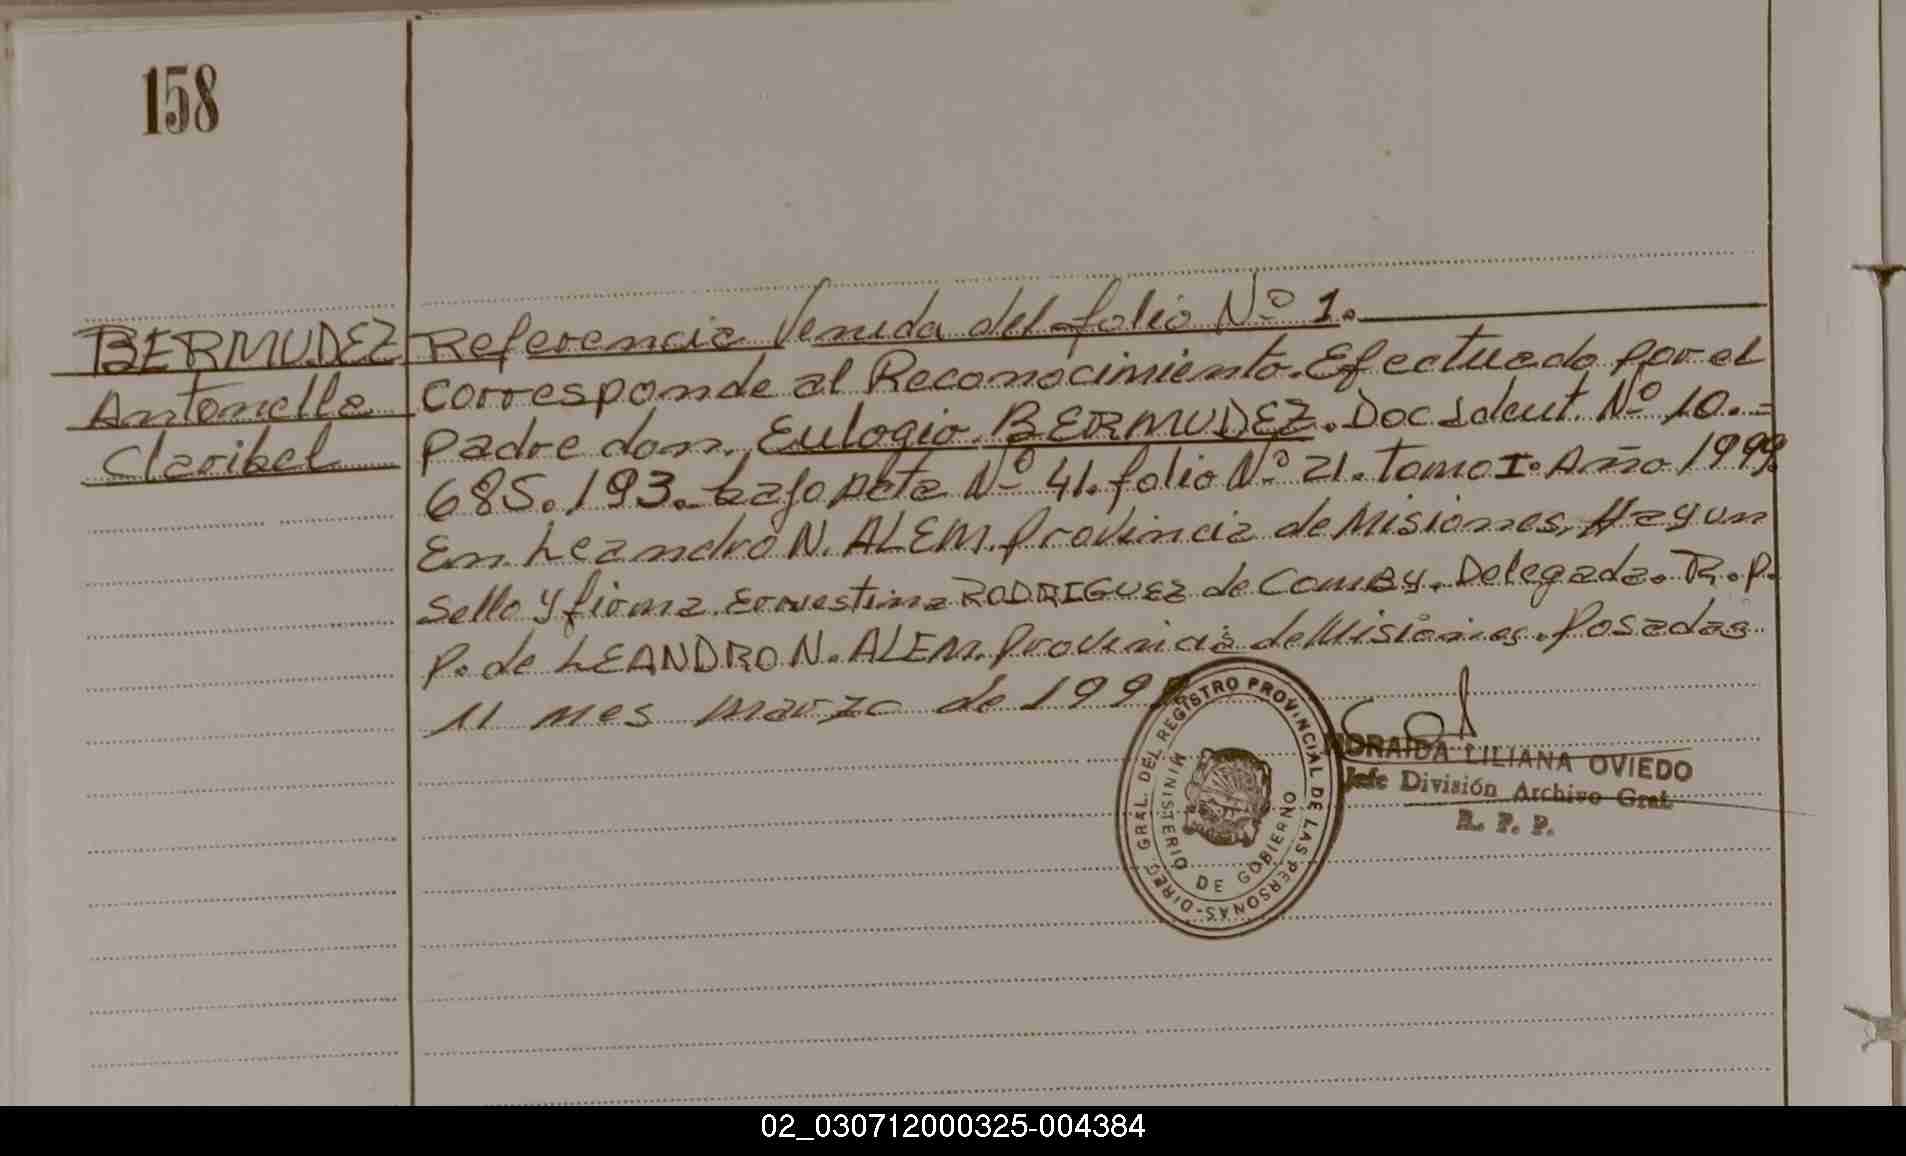 158
BERMUDEZ
Antonella
Claribel
Referencia Venida del folio Nº 1.
corresponde al Reconocimiento. Efectuado por el
padre don. Eulogio BERMUDEZ. Doc Ident. Nº 10.-
685.193. bajo Acta Nº 41. folio Nº 21. tomo I. Año 1999.
En Leandro N. ALEM. provincia de Misiones, Hay un
Sello y firma Ernestina RODRIGUEZ de Delegada. R.P.
P. de LEANDRO N. ALEM. provincia de Misiones. Posadas
11 mes marzo de
DIREG. GRAL. DEL REGISTRO PROVINCIAL DE LAS PERSONAS-
MINISTERIO DE GOBIERNO
LILIANA OVIEDO
Jefe División Archivo Gral.
R. P. P.
02_030712000325-004384